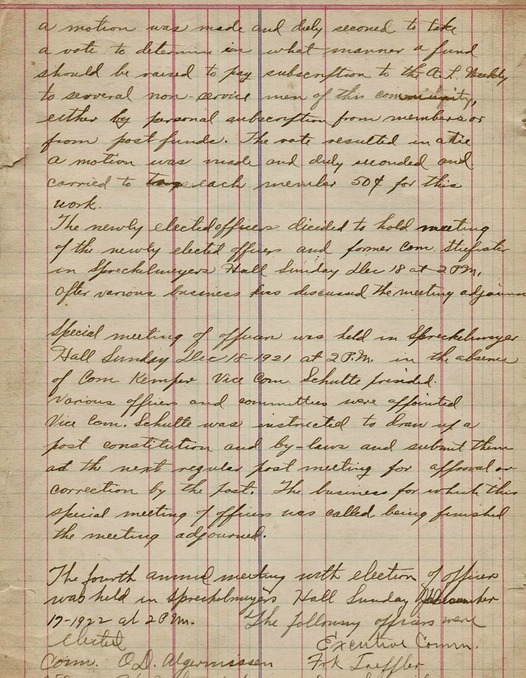 a motion was made and duly seconed to take
a vote to determine in what manner a fund
should be raised to pay subscription to the A. L. Weekly
to serveral non-service men of the community,
either by personal subscription from members or
from post funds. The vote resulted in a tie
a motion was made and duly seconded and
carried to each member 50¢ for this
work.
The newly elected officers decided to hold meeting
of the newly elected officers and former Com.
in Spreckelmeyers Hall Sunday Dec 18 at 2 P.M.
After various business was discussed the meeting adjourned
Special meeting of officers was held in Spreckelmeyer
Hall Sunday Dec 18-1921 at 2 P.M. in the absence
of Com Kemper Vice Com. Schulte presided.
Various officers and committees were appointed
Vice Com. Schulte was instructed to draw up a
post constitution and by-laws and submit them
at the next regular post meeting for approval or
correction by the post. The business for which this
special meeting of officers was called being finished
the meeting adjourned.
The fourth annual meeting with election of officers
was held in Spreckelmeyers Hall Sunday December
17-1922 at 2 P.M. The following officers were
elected Executive Comm.
Com. O.D. Algermissen Frk Toeffler